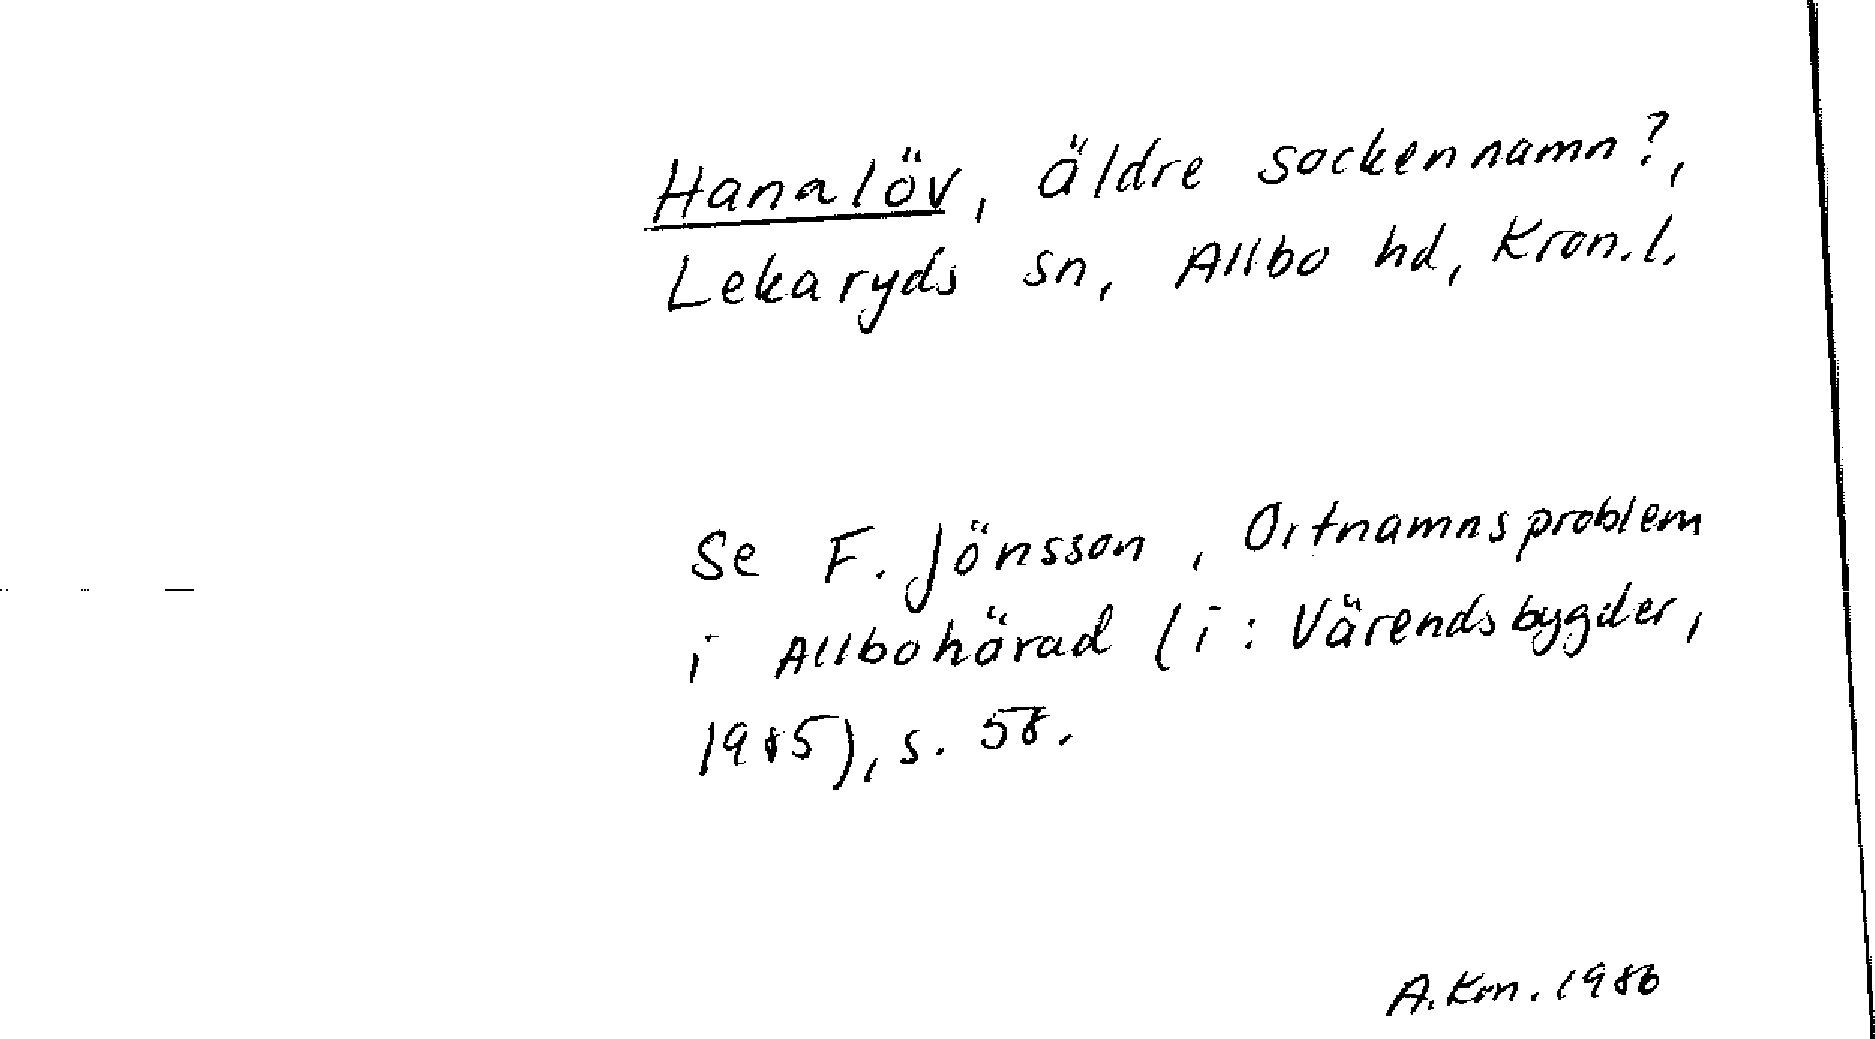 Hanalöv, äldre sockennamn?,
Lekaryds sn, Allbo hd, Kron.l.
Se F. Jönsson, Ortnamnsproblem
i Allbohärad (i: Värendsbygder,
1985), s. 58.
A.Km. 1986